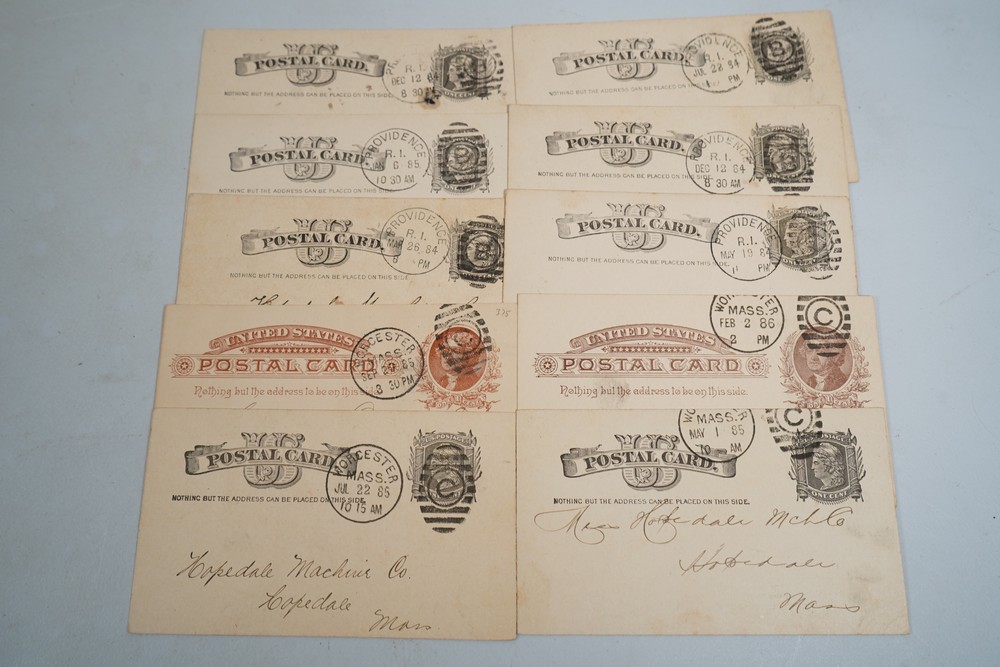 POSTAL CARD.
NOTHING BUT THE ADDRESS CAN BE PLACED ON THIS SIDE.
R.I.
DEC 12 84
8 30
POSTAL CARD.
NOTHING BUT THE ADDRESS CAN BE PLACED ON THIS SIDE.
PROVIDENCE
R.I.
JUL 22 84
PM
B
POSTAL CARD.
NOTHING BUT THE ADDRESS CAN BE PLACED ON THIS SIDE.
PROVIDENCE
R.I.
JAN 6 85
10 30 AM
POSTAL CARD.
NOTHING BUT THE ADDRESS CAN BE PLACED ON THIS SIDE.
PROVIDENCE
R.I.
DEC 12 84
8 30 AM
POSTAL CARD.
NOTHING BUT THE ADDRESS CAN BE PLACED ON THIS SIDE.
PROVIDENCE
R.I.
MAR 26 84
8 PM
POSTAL CARD.
NOTHING BUT THE ADDRESS CAN BE PLACED ON THIS SIDE.
PROVIDENCE
R.I.
MAY 19 84
PM
ONE CENT
UNITED STATES
POSTAL CARD
Nothing but the address to be on this side.
WORCESTER
MASS.
8 30 PM
C
UNITED STATES
POSTAL CARD
Nothing but the address to be on this side.
WORCESTER
MASS.
FEB 2 86
2 PM
C
POSTAL CARD.
NOTHING BUT THE ADDRESS CAN BE PLACED ON THIS SIDE.
WORCESTER
MASS.
JUL 22 85
10 15 AM
C
Hopedale Machine Co.
Hopedale
Mass.
POSTAL CARD.
NOTHING BUT THE ADDRESS CAN BE PLACED ON THIS SIDE.
MASS.
MAY 1 85
10 AM
C
ONE CENT
Hopedale Mch Co
Hopedale
Mass